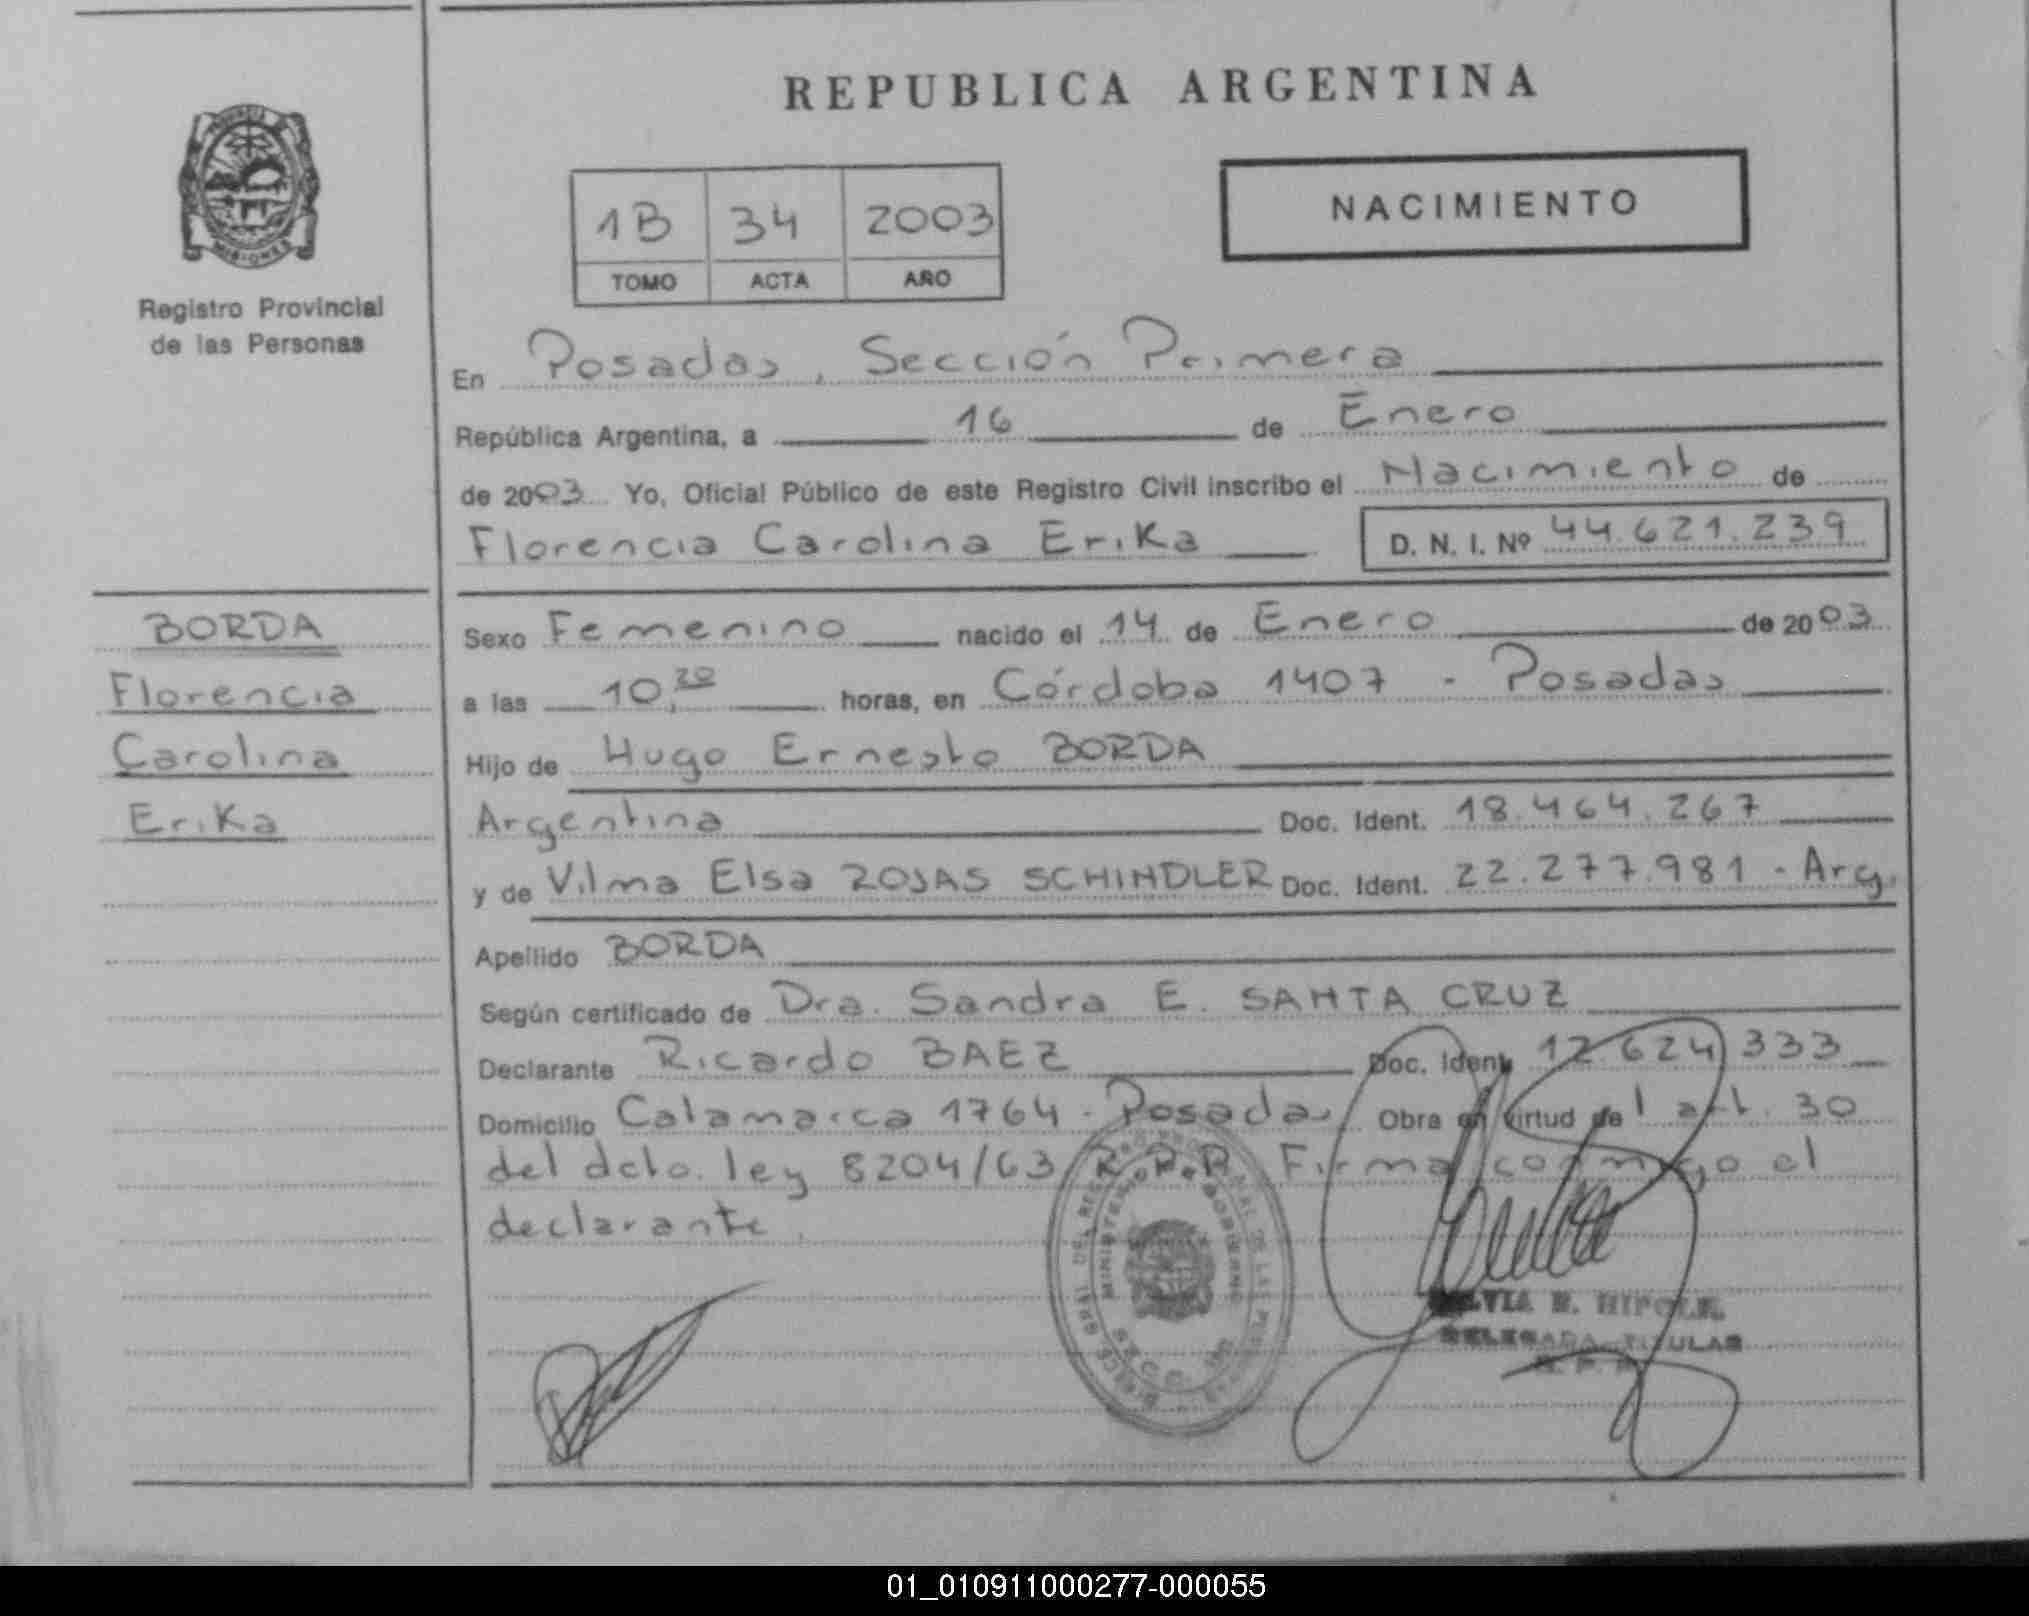 REPUBLICA ARGENTINA
1B 34 2003
TOMO ACTA AÑO
NACIMIENTO
MISIONES
Registro Provincial
de las Personas
En Posadas, Sección Primera
República Argentina, a 16 de Enero
de 2003 Yo, Oficial Público de este Registro Civil inscribo el Nacimiento de
Florencia Carolina Erika D. N. I. Nº 44.621.239
BORDA
Florencia
Carolina
Erika
Sexo Femenino nacido el 14 de Enero de 2003
a las 10,20 horas, en Córdoba 1407 - Posadas
Hijo de Hugo Ernesto BORDA
Argentina Doc. Ident. 18.464.267
y de Vilma Elsa ROJAS SCHINDLER Doc. Ident. 22.277.981 - Arg.
Apellido BORDA
Según certificado de Dra. Sandra E. SANTA CRUZ
Declarante Ricardo BAEZ Doc. Ident. 12.624.333
Domicilio Catamarca 1764 - Posadas Obra en virtud del art. 30
del dcto. ley 8204/63 R.P.P. Firma conmigo el
declarante.
MINISTERIO DE GOBIERNO
DELEGADA TITULAR
01_010911000277-000055